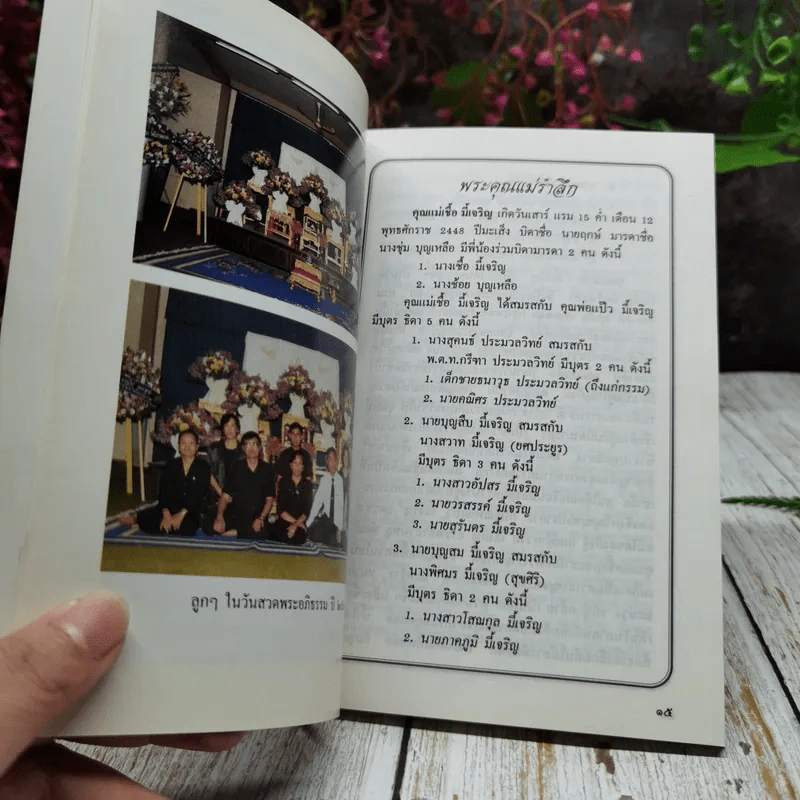 ลูกๆ ในวันสวดพระอภิธรรม ปี
พระคุณแม่รำลึก
คุณแม่เชื้อ มี้เจริญ เกิดวันเสาร์ แรม 15 ค่ำ เดือน 12
พุทธศักราช 2448 ปีมะเส็ง บิดาชื่อ นายฤกษ์ มารดาชื่อ
นางชุ่ม บุญเหลือ มีพี่น้องร่วมบิดามารดา 2 คน ดังนี้
1. นางเชื้อ มี้เจริญ
2. นางช้อย บุญเหลือ
คุณแม่เชื้อ มี้เจริญ ได้สมรสกับ คุณพ่อแป๊ว มี้เจริญ
มีบุตร ธิดา 5 คน ดังนี้
1. นางสุคนธ์ ประมวลวิทย์ สมรสกับ
พ.ต.ท.กรีฑา ประมวลวิทย์ มีบุตร 2 คน ดังนี้
1. เด็กชายธนาวุธ ประมวลวิทย์ (ถึงแก่กรรม)
2. นายคณิศร ประมวลวิทย์
2. นายบุญสืบ มี้เจริญ สมรสกับ
นางสวาท มี้เจริญ (ยศประยูร)
มีบุตร ธิดา 3 คน ดังนี้
1. นางสาวอัปสร มี้เจริญ
2. นายวรสรรค์ มี้เจริญ
3. นายสุรันดร มี้เจริญ
3. นายบุญสม มี้เจริญ สมรสกับ
นางพิศมร มี้เจริญ (สุขศิริ)
มีบุตร ธิดา 2 คน ดังนี้
1. นางสาวโสณกุล มี้เจริญ
2. นายภาคภูมิ มี้เจริญ
๑๕